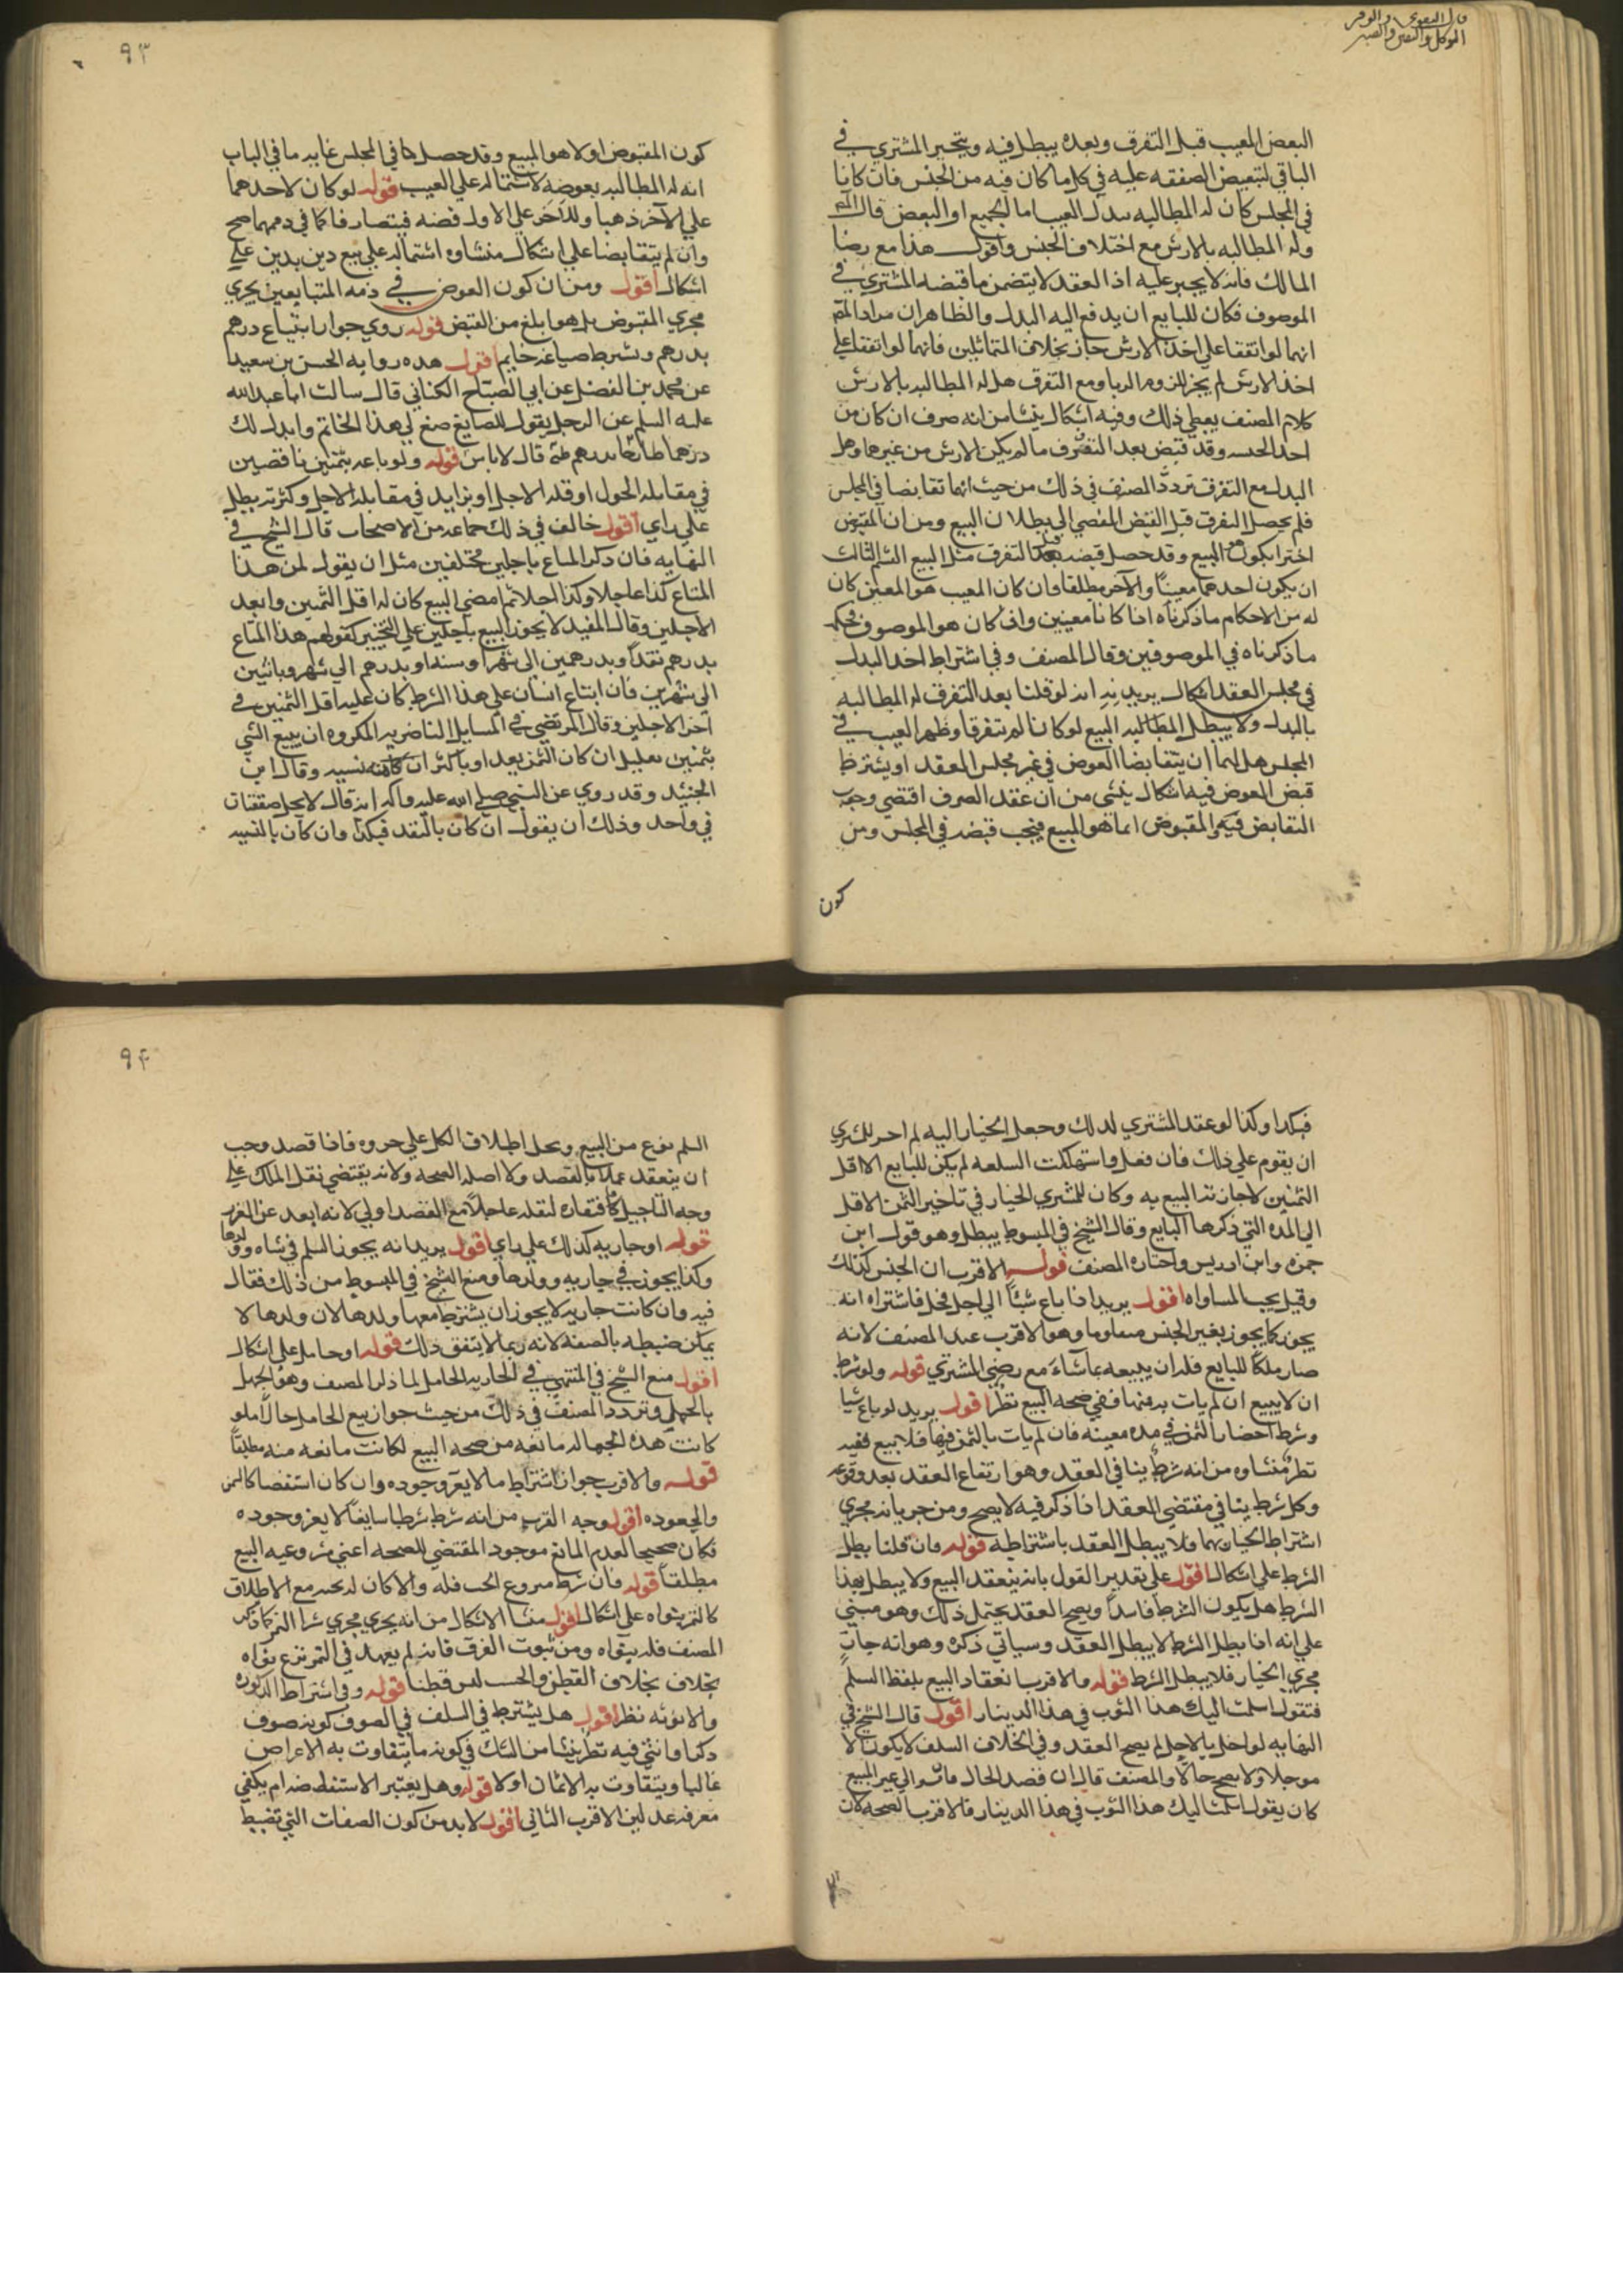 البعض المعيب قبل التفرق وبعده يبطل فيه ويتخير المشتري في
الباقي لتبعيض الصفقه عليه في كل ما كان فيه من الجنس فان كانا
في المجلس كان له المطالبه ببدل العيب اما الجميع او البعض قال المص
وله المطالبه بالارش مع اختلاف الجنس واقول هذا مع رضا
المالك فانه لا يجبر عليه اذ العقد لا يتضمن ما قبضه المشتري في
الموصوف فكان للبايع ان يدفع اليه البدل والظاهر ان مراد المص
انهما لو اتفقا على اخذ الارش جاز بخلاف المتماثلين فانهما لو اتفقا على
اخذ الارش لم يجز للزوم الربا ومع التفرق هل له المطالبه بالارش
كلام المصنف يعطي ذلك وفيه اشكال ينشا من انه صرف ان كان من
احد الجنسه وقد قبض بعد التفرق ما لم يكن الارش من غيرهما وهل
البدل مع التفرق تردد المصنف في ذلك من حيث انهما تقابضا في المجلس
فلم يحصل التفرق قبل القبض المفضي الى بطلان البيع ومن ان المقبوض
اخترا يكون هو البيع وقد حصل قبضه بعد التفرق مثل البيع القسم الثالث
ان يكون احدهما معينًا والآخر مطلقا فان كان المعيب هو المعين كان
له من الاحكام ما ذكرناه اذا كانا معينين وان كان هو الموصوف فحكمه
ما ذكرناه في الموصوفين وقال المصنف وفي اشتراط اخذ البدل
في مجلس العقد اشكال يريد به انه لو قلنا بعد التفرق له المطالبه
بالبدل ولا يبطل المطالبه البيع لو كانا لم يتفرقا وظهر العيب في
المجلس هل لهما ان يتقابضا العوض في غير مجلس العقد او يشترط
قبض العوض فيه اشكال ينشى من ان عقد الصرف اقتضى وجوب
التقابض فيه والمقبوض انما هو المبيع فيجب قبضه في المجلس ومن
كون
٩٣
كون المقبوض اولا هو المبيع وقد حصل هنا في المجلس غايه ما في الباب
انه له المطالبه بعوضه لاشتماله على العيب قوله لو كان لاحدهما
على الآخر ذهبا وللآخر على الاول فضه فيتصارفا كما في ذممهما صح
وان لم يتقابضا على اشكال منشاوه اشتماله على بيع دين بدين على
اشكال اقول ومن ان كون العوض في ذمه المتبايعين يجري
مجرى المقبوض بل هو ابلغ من القبض قوله روي جواز ابتياع درهم
بدرهم وشرط صياغه خاتم اقول هذه روايه الحسن بن سعيد
عن محمد بن الفضل عن ابي الصباح الكناني قال سالت ابا عبد الله
عليه السلم عن الرجل يقول للصايغ صغ لي هذا الخاتم وابدل لك
درهما طازجا بدرهم غله قال لا باس قوله ولو باعه بثمنين ناقصين
في مقابله الحول او قله الاجل او بزايد في مقابله الاجل وكثرته يبطل
على راي اقول خالف في ذلك جماعه من الاصحاب قال الشيخ في
النهايه فان ذكر المتاع باجلين مختلفين مثل ان يقول لمن هذا
المتاع كذا عاجلا وكذا اجلا ثم امضى البيع كان له اقل الثمنين وابعد
الاجلين وقال المفيد لا يجوز البيع باجلين على التخيير كقولهم هذا المتاع
بدرهم نقدًا وبدرهمين الى شهر او سنه او بدرهم الى شهر وباثنين
الى شهرين فان ابتاع انسان على هذا الشرط كان عليه اقل الثمنين في
آخر الاجلين وقال المرتضى في المسايل الناصريه المكروه ان يبيع الشي
بثمنين بقليل ان كان الثمن نقدا وباكثر ان كان نسيه وقال ابن
الجنيد وقد روي عن النبي صلى الله عليه وآله انه قال لا يحل صفقتان
في واحد وذلك ان يقول ان كان بالنقد فبكذا وان كان بالنسيه
فبكذا وكذا لو عقد المشتري لذلك وجعل الخيار اليه لم اختر للمشتري
ان يقوم على ذلك فان فعل واستهلكت السلعه لم يكن للبايع الا اقل
الثمنين لاجازته البيع به وكان للمشتري الخيار في تاخير الثمن الاقل
الى المده التي ذكرها البايع وقال الشيخ في المبسوط يبطل وهو قول ابن
حمزه وابن ادريس واختاره المصنف قوله الاقرب ان الجنس كذلك
وقيل يجب المساواه اقول يريد اذا باع شيئًا الى اجل فحل فاشتراه انه
يجوز كما يجوز بغير الجنس متفاوتا وهو الاقرب عند المصنف لانه
صار ملكًا للبايع فله ان يبيعه بما شاء مع رضى المشتري قوله ولو شرط
ان لا يبيع ان لم يات به فيها ففي صحه البيع نظر اقول يريد لو باع شيا
وشرط احضار الثمن في مده معينه فان لم يات بالثمن فيها فلا بيع ففيه
نظر منشاوه من انه شرط ينافي العقد وهو ارتفاع العقد بعد وقوعه
وكل شرط ينافي مقتضى العقد اذا ذكر فيه لا يصح ومن جريانه مجرى
اشتراط الخيار بهما فلا يبطل العقد باشتراطه قوله فان قلنا بطل
الشرط على اشكال اقول على تقدير القول بانه ينعقد البيع ولا يبطل بهذا
الشرط هل يكون الشرط فاسدًا ويصح العقد يحتمل ذلك وهو مبني
على انه اذا بطل الشرط لا يبطل العقد وسياتي ذكره وهو انه جاز
مجرى الخيار فلا يبطل الشرط قوله والاقرب انعقاد البيع بلفظ السلم
فتقول اسلمت اليك هذا الثوب في هذا الدينار اقول قال الشيخ في
النهايه لو اخل بالاجل لم يصح العقد وفي الخلاف السلف لا يكون الا
موجلا ولا يصح حالًا والمصنف قال ان قصد الحال
كان يقول اسلمت اليك هذا الثوب في هذا الدينار فالاقرب الصحه لان
٩٤
السلم نوع من البيع ويحل اطلاق الكل على جزوه فاذا قصد وجب
ان ينعقد عملا بالقصد ولاصاله الصحه ولانه يقتضي نقل الملك على
وجه التاجيل فاقتضاه لنقله عاجلًا مع القصد اولى لانه ابعد عن الغرر
قوله او جاريه كذلك على راي اقول يريد انه يجوز السلم في شاه وولدها
وكذا يجوز في جاريه وولدها ومنع الشيخ في المبسوط من ذلك فقال
فيه وان كانت جاريه لا يجوز ان يشترط معها ولدها لان ولدها لا
يمكن ضبطه بالصفه لانه ربما لا يتفق ذلك قوله او حامل على اشكال
اقول منع الشيخ في المنتهى في الجاريه الحامل لما ذكر المصنف وهو الجهل
بالحمل وتردد المصنف في ذلك من حيث جواز بيع الحامل حالًا فلو
كانت هذه الجهاله مانعه من صحه البيع لكانت مانعه منه مطلقًا
قوله والاقرب جواز اشتراط ما لا يعز وجوده وان كان استقصا كالسمن
والجعوده اقول وجه القرب من انه شرط شرطا سايغًا لا يعز وجوده
فكان صحيحا لعدم المانع موجود المقتضي للصحه اعني مشروعيه البيع
مطلقًا قوله فان شرط منزوع الحب فله والا كان له بحبه مع الاطلاق
كالتمر بنواه على اشكال اقول منشا الاشكال من انه يجري مجرى شرا التمر كما ذكر
المصنف فله بنواه ومن ثبوت الفرق فانه لم يعهد في التمر نزع نواه
بخلاف القطن والحب ليس قطنا قوله وفي اشتراط الذكوره
والانوثه نظر اقول هل يشترط في السلف في الصوف كونه صوف
ذكر او انثى فيه نظر ينشا من الشك في كونه ما يتفاوت به الاغراض
غالبا ويتفاوت به الاثمان اولا قوله وهل يعتبر الاستفضه ام يكفي
معرفه عدلين الاقرب الثاني اقول لابد من كون الصفات التي تضبط